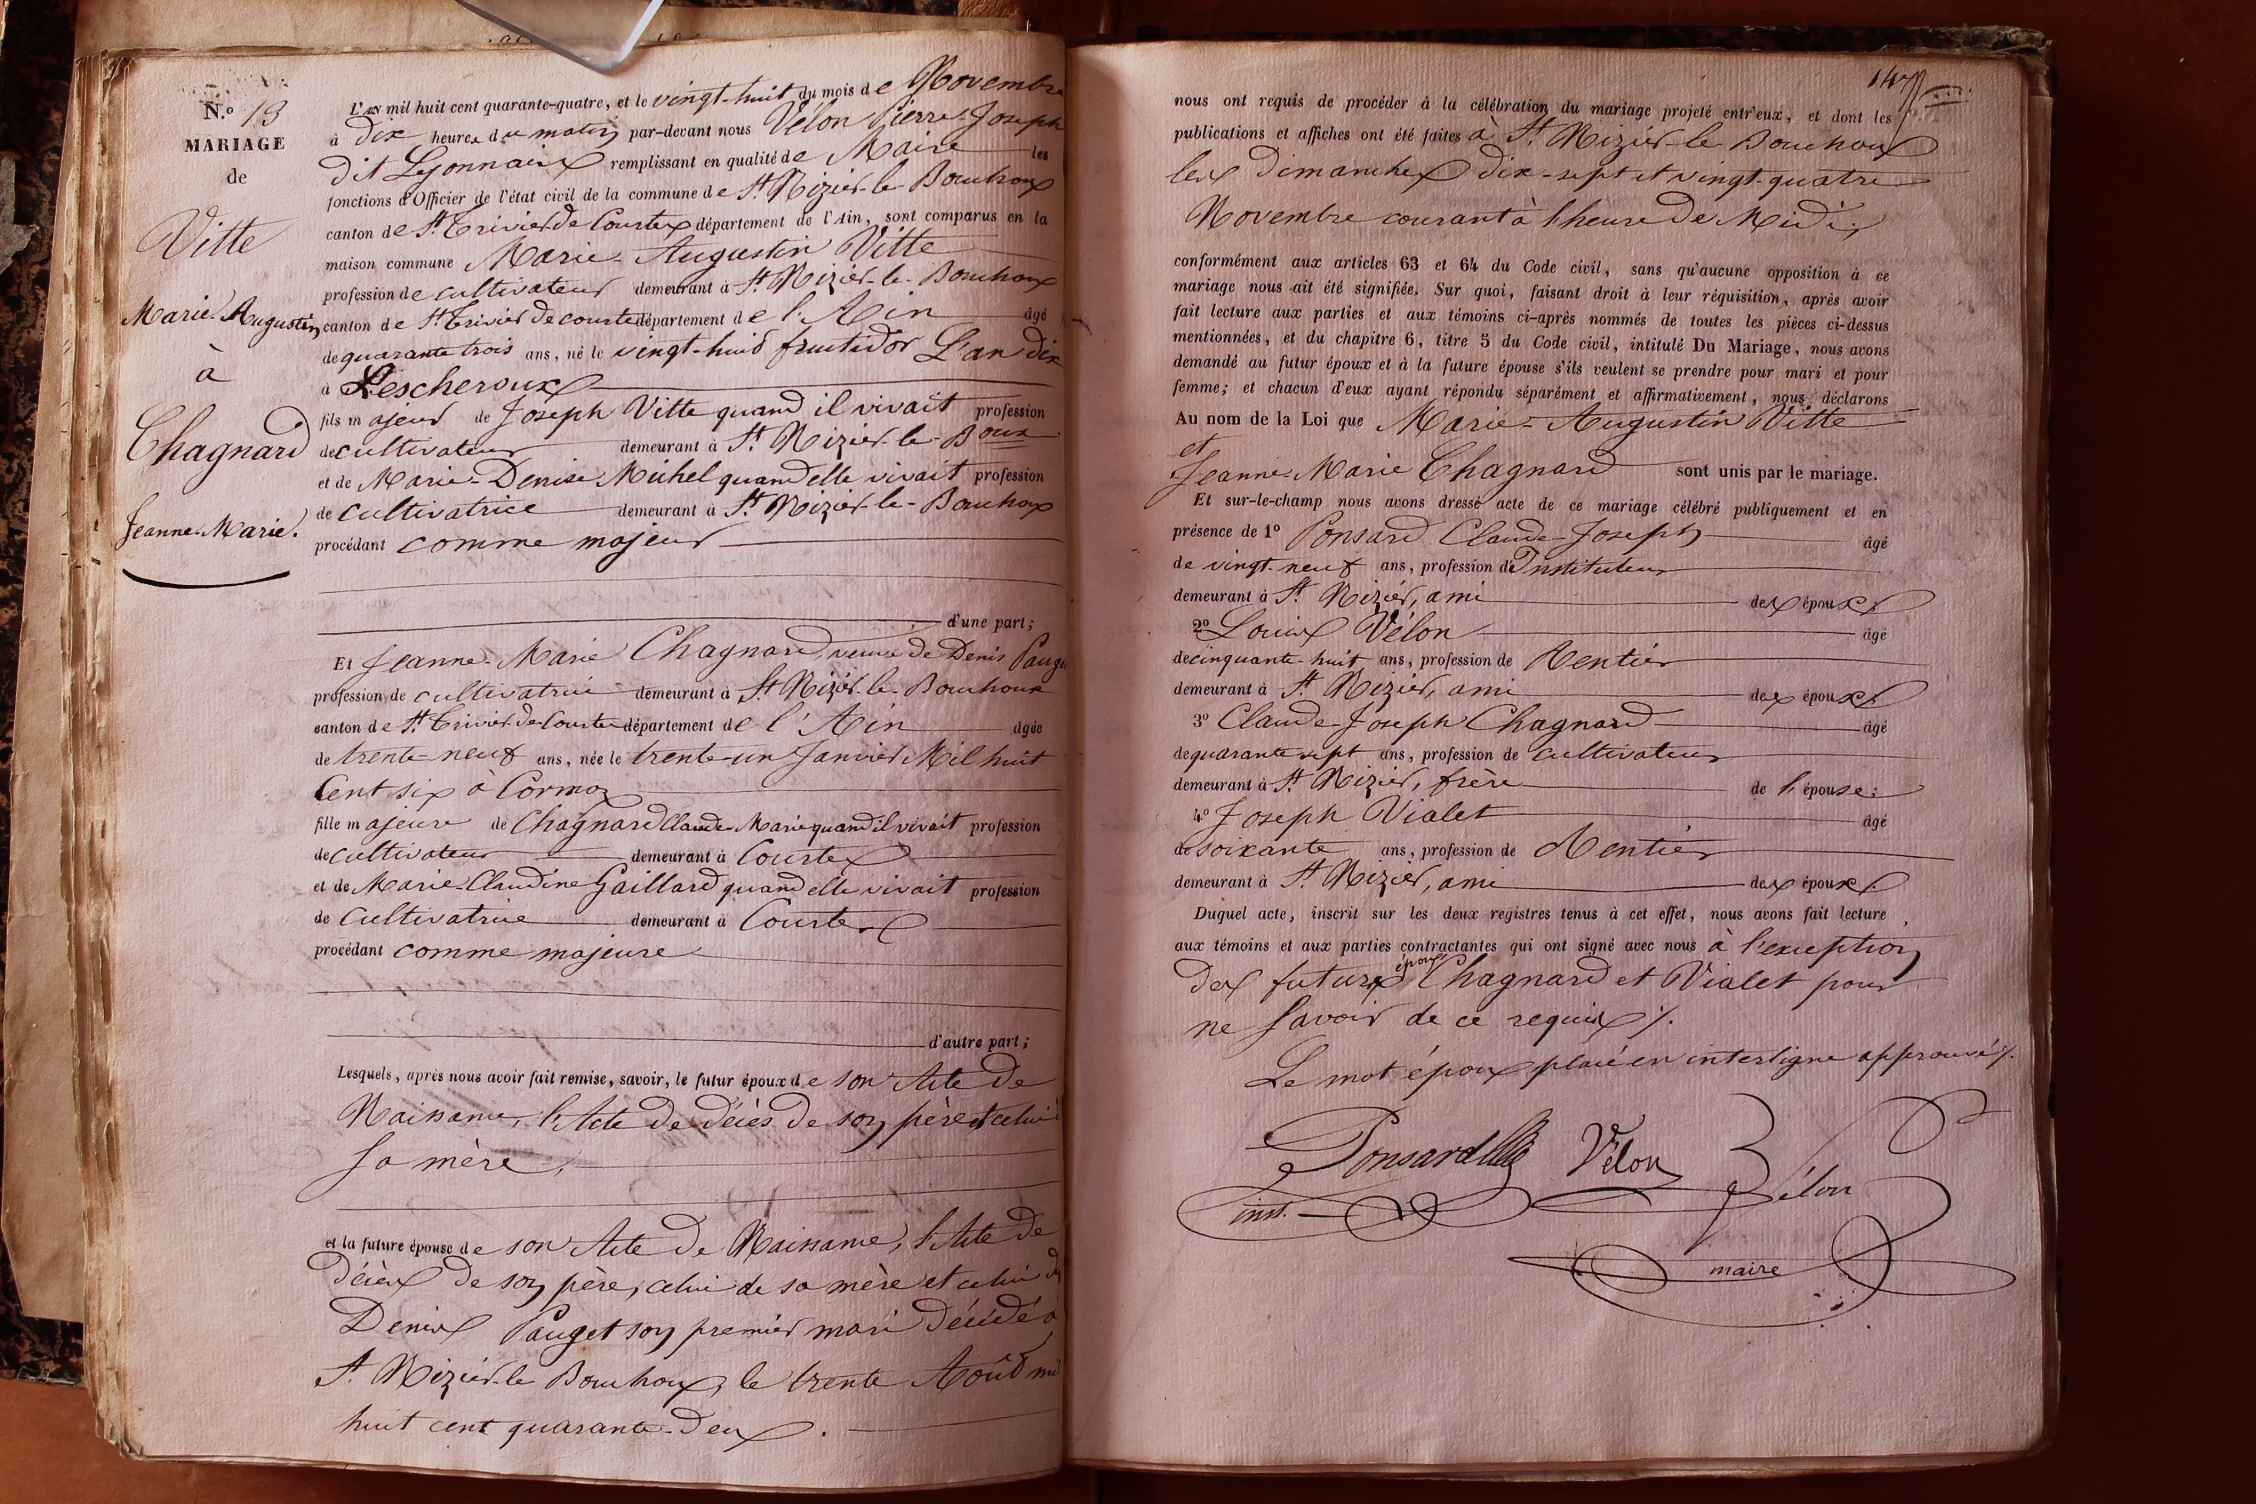 N.o 13
MARIAGE
de
Vitte
Marie-Augustin
à
Chagnard
Jeanne-Marie.
L'an mil huit cent quarante-quatre, et le vingt-huit du mois de Novembre
à dix heures du matin par-devant nous Vélon Pierre-Joseph
dit Lyonnais remplissant en qualité de Maire les
fonctions d'Officier de l'état civil de la commune de St Nizier-le-Bouchoux
canton de St Trivier de Courtes département de l'Ain, sont comparus en la
maison commune Marie-Augustin Vitte
profession de cultivateur demeurant à St Nizier-le-Bouchoux
canton de St Trivier de courtes département de l'Ain âgé
de quarante trois ans, né le vingt-huit fructidor L'an dix
à Lescheroux
fils majeur de Joseph Vitte quand il vivait profession
de cultivateur demeurant à St Nizier-le-Boux
et de Marie-Denise Michel quand elle vivait profession
de cultivatrice demeurant à St Nizier-le-Bouchoux
procédant comme majeur
d'une part;
Et Jeanne-Marie Chagnard, veuve de Denis Pauget
profession de cultivatrice demeurant à St Nizier-le-Bouchoux
canton de St Trivier de Courtes département de l'Ain âgée
de trente-neuf ans, née le trente-un Janvier Mil huit
Cent six à Cormoz
fille majeure de Chagnard Claude-Marie quand il vivait profession
de cultivateur demeurant à Courtes
et de Marie-Claudine Gaillard quand elle vivait profession
de cultivatrice demeurant à Courtes
procédant comme majeure
d'autre part;
Lesquels, après nous avoir fait remise, savoir, le futur époux de son Acte de
Naissance, l'Acte de décès de son père et celui
sa mère,
et la future épouse de son Acte de Naissance, l'Acte de
décès de son père, celui de sa mère et celui de
Denis Pauget son premier mari décédé à
St Nizier-le Bouchoux, le trente Août mil
huit cent quarante-deux.
147
nous ont requis de procéder à la célébration du mariage projeté entr'eux, et dont les
publications et affiches ont été faites à St Nizier-le Bouchoux
les Dimanches dix-sept et vingt-quatre
Novembre courant à l'heure de Midi;
conformément aux articles 63 et 64 du Code civil, sans qu'aucune opposition à ce
mariage nous ait été signifiée. Sur quoi, faisant droit à leur réquisition, après avoir
fait lecture aux parties et aux témoins ci-après nommés de toutes les pièces ci-dessus
mentionnées, et du chapitre 6, titre 5 du Code civil, intitulé Du Mariage, nous avons
demandé au futur époux et à la future épouse s'ils veulent se prendre pour mari et pour
femme; et chacun d'eux ayant répondu séparément et affirmativement, nous déclarons
Au nom de la Loi que Marie-Augustin Vitte
et
Jeanne-Marie Chagnard sont unis par le mariage.
Et sur-le-champ nous avons dressé acte de ce mariage célébré publiquement et en
présence de 1o Ponsard Claude-Joseph âgé
de vingt-neuf ans, profession d'Instituteur
demeurant à St Nizier, ami des époux;
2o Louis Vélon âgé
de cinquante-huit ans, profession de Rentier
demeurant à St Nizier, ami des époux;
3o Claude-Joseph Chagnard âgé
de quarante sept ans, profession de cultivateur
demeurant à St Nizier, frère de l'épouse;
4o Joseph Vialet âgé
de soixante ans, profession de Rentier
demeurant à St Nizier, ami des époux.
Duquel acte, inscrit sur les deux registres tenus à cet effet, nous avons fait lecture
aux témoins et aux parties contractantes qui ont signé avec nous à l'exception
époux
des futurs Chagnard et Vialet pour
ne savoir de ce requis ./.
Le mot époux placé en interligne approuvé ./.
Ponsard Vélon Vélon
inst.
maire